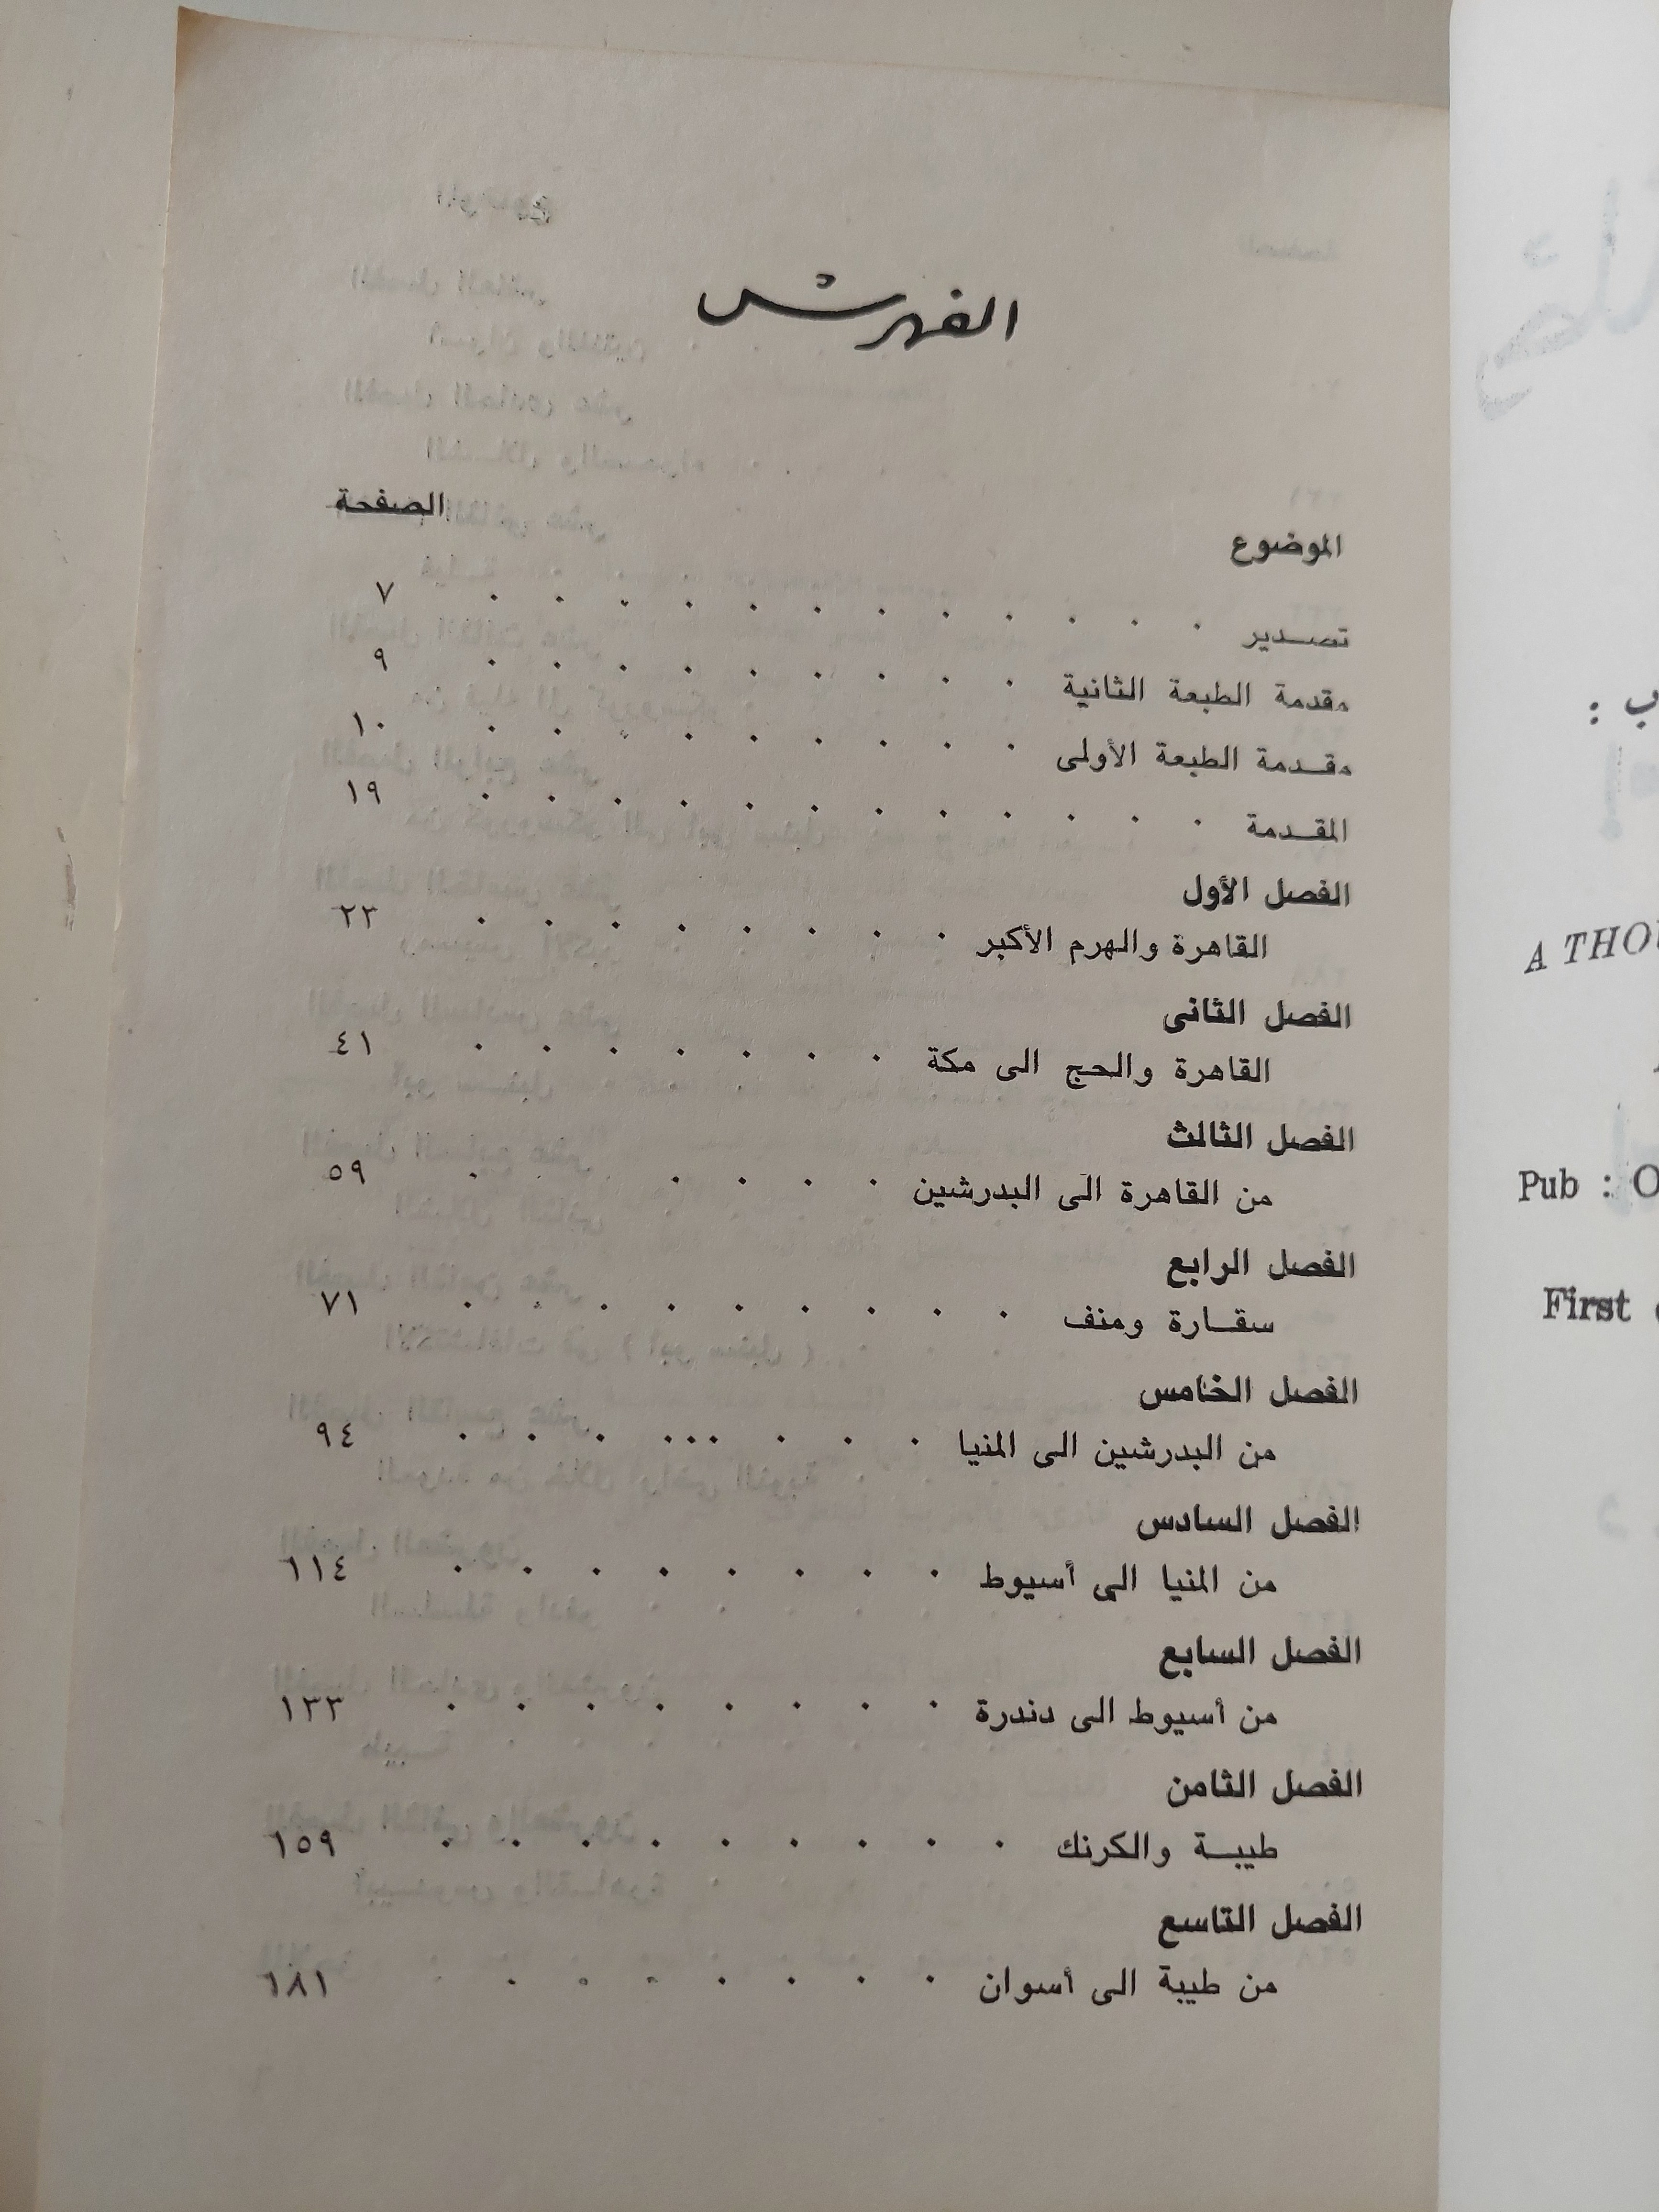 الفهرس
الموضوع الصفحة
تصدير ٧
مقدمة الطبعة الثانية ٩
مقدمة الطبعة الأولى ١٠
المقدمة ١٩
الفصل الأول
القاهرة والهرم الأكبر ٢٣
الفصل الثانى
القاهرة والحج الى مكة ٤١
الفصل الثالث
من القاهرة الى البدرشين ٥٩
الفصل الرابع
سقارة ومنف ٧١
الفصل الخامس
من البدرشين الى المنيا ٩٤
الفصل السادس
من المنيا الى أسيوط ١١٤
الفصل السابع
من أسيوط الى دندرة ١٣٣
الفصل الثامن
طيبة والكرنك ١٥٩
الفصل التاسع
من طيبة الى أسوان ١٨١
A
Pub :
First